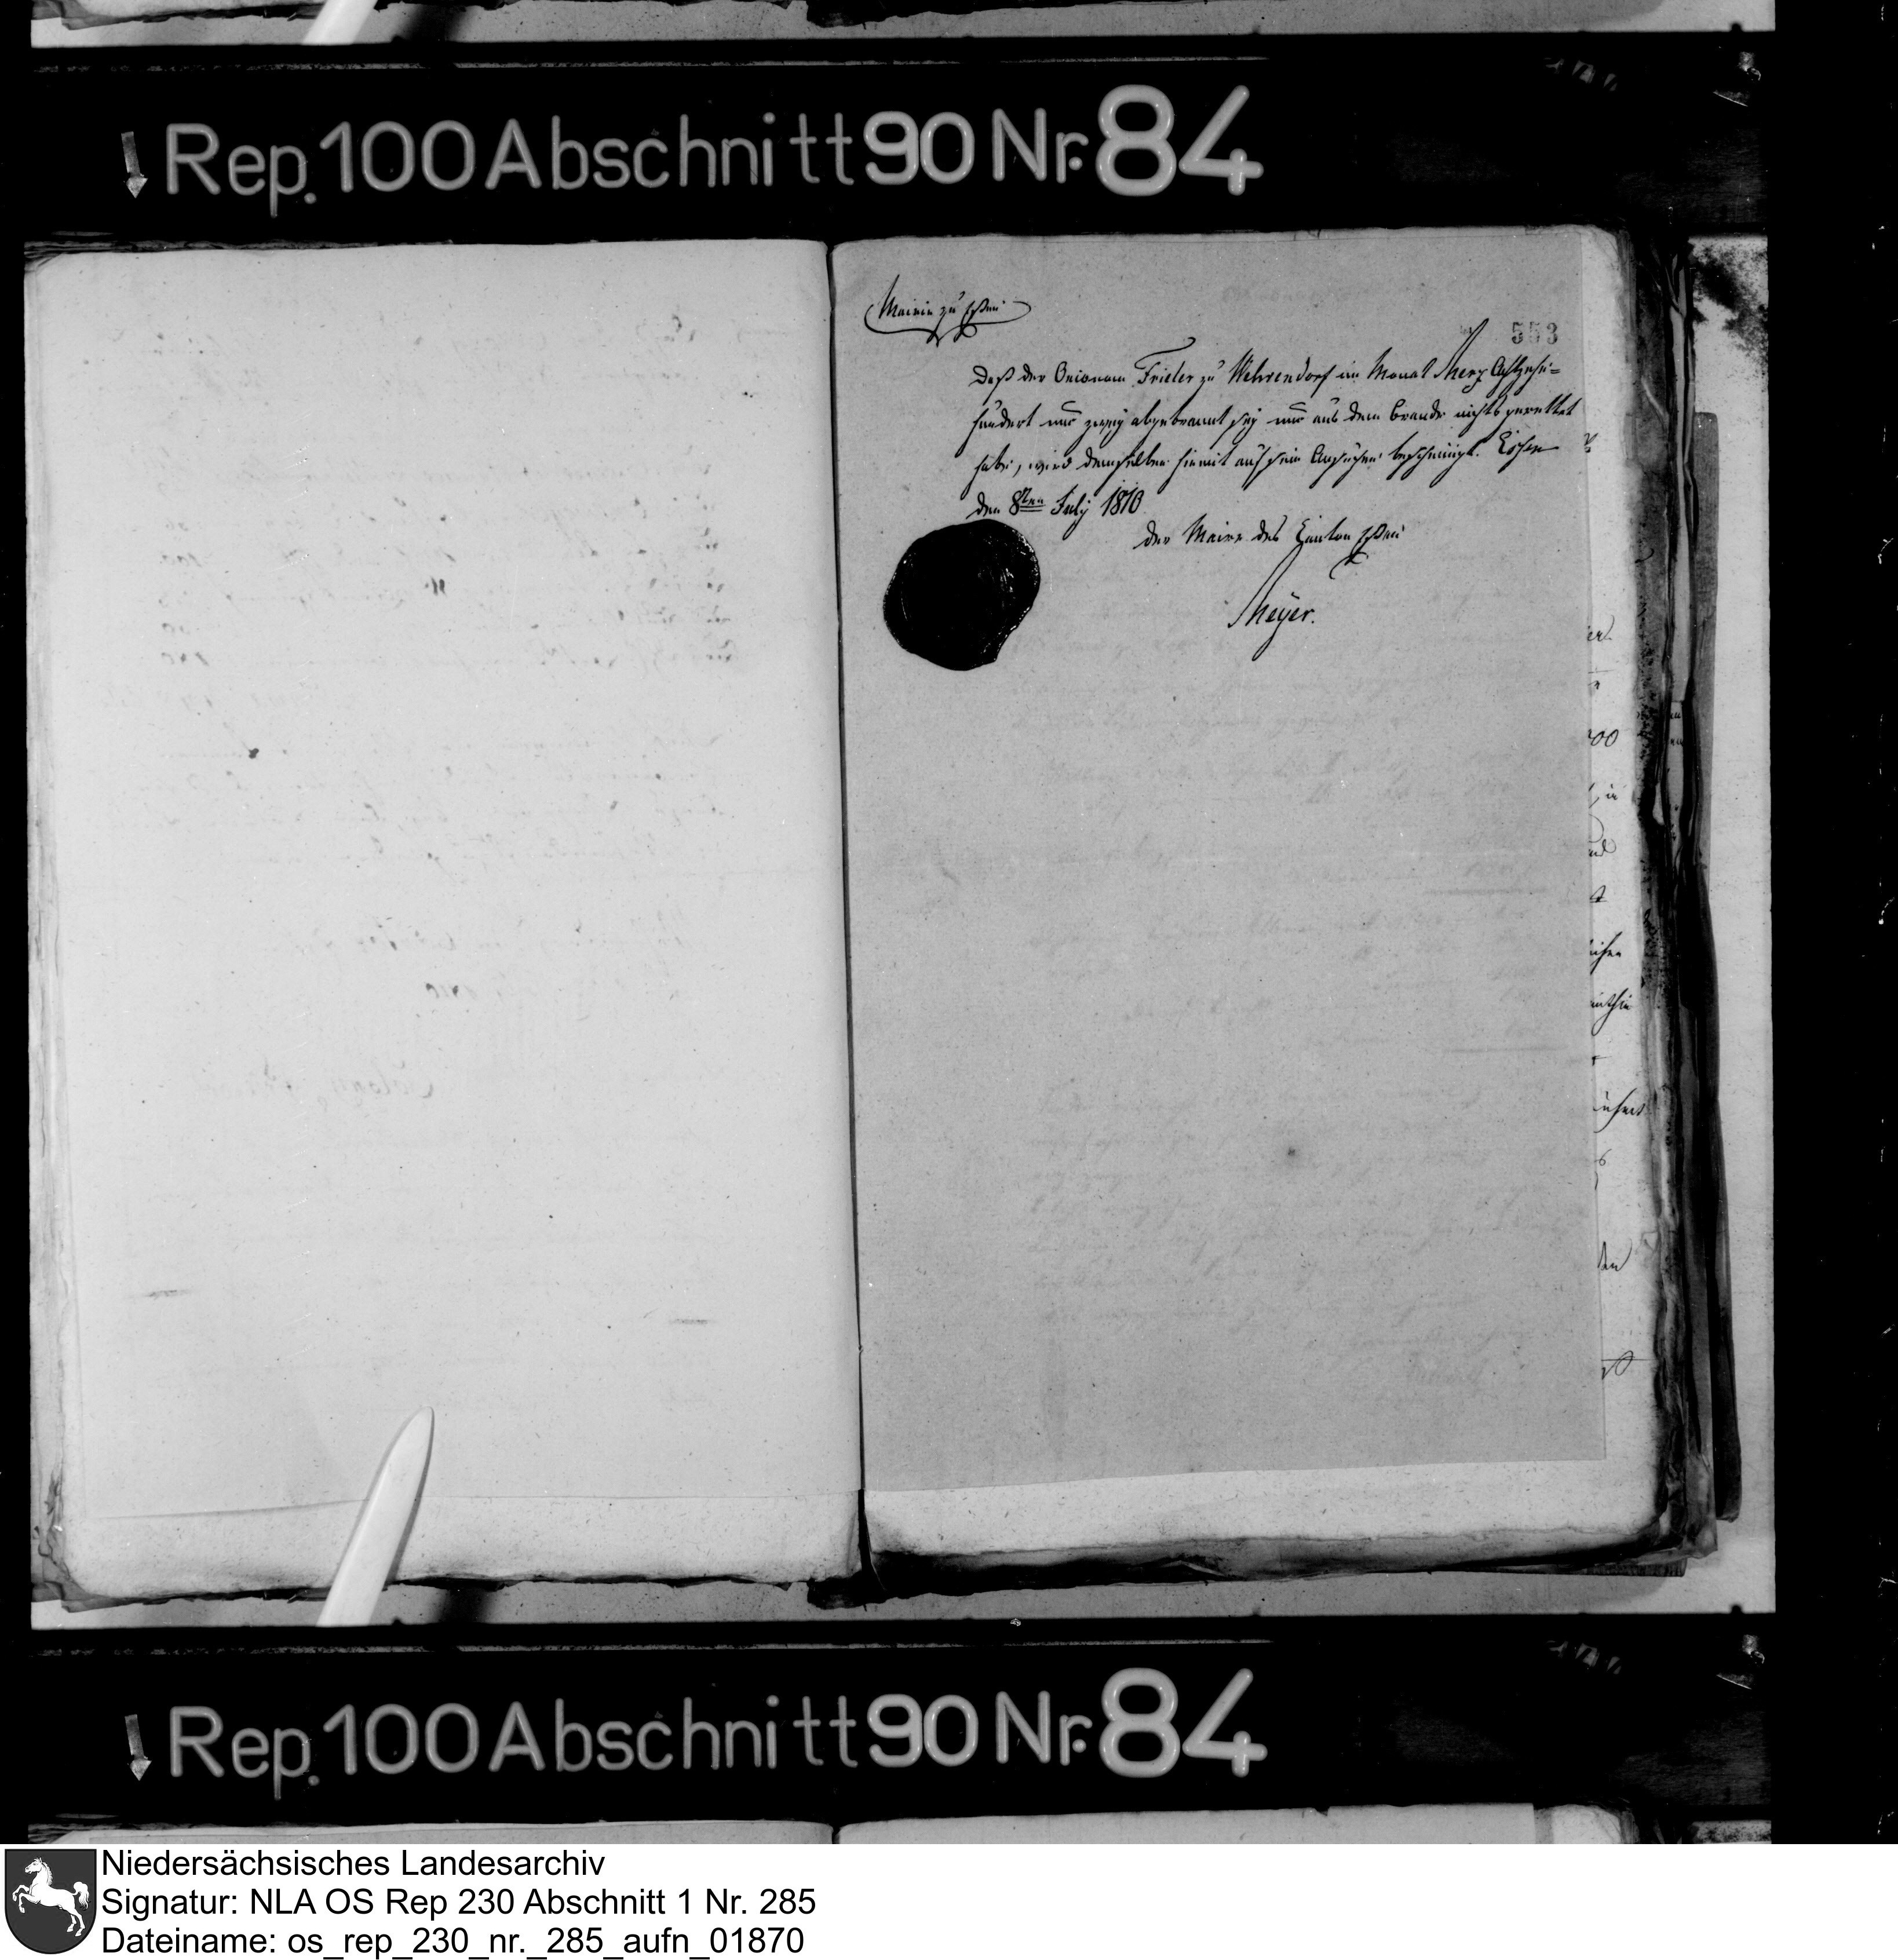 Rep. 100 Abschnitt 90 Nr. 84
Mairie zu Essen
553
Daß der Oeconom Frieler zu Wehrendorf im Monat Merz Achtzehn=
hundert und abgebrannt sey und aus dem Brande nichts gerettet
habe, wird demselben hiemit auf sein Ansuchen bescheinigt. Essen
den 8ten July 1810
Der Maire des Canton Essen
Meyer.
Rep. 100 Abschnitt 90 Nr. 84
Niedersächsisches Landesarchiv
Signatur: NLA OS Rep 230 Abschnitt 1 Nr. 285
Dateiname: os_rep_230_nr._285_aufn_01870